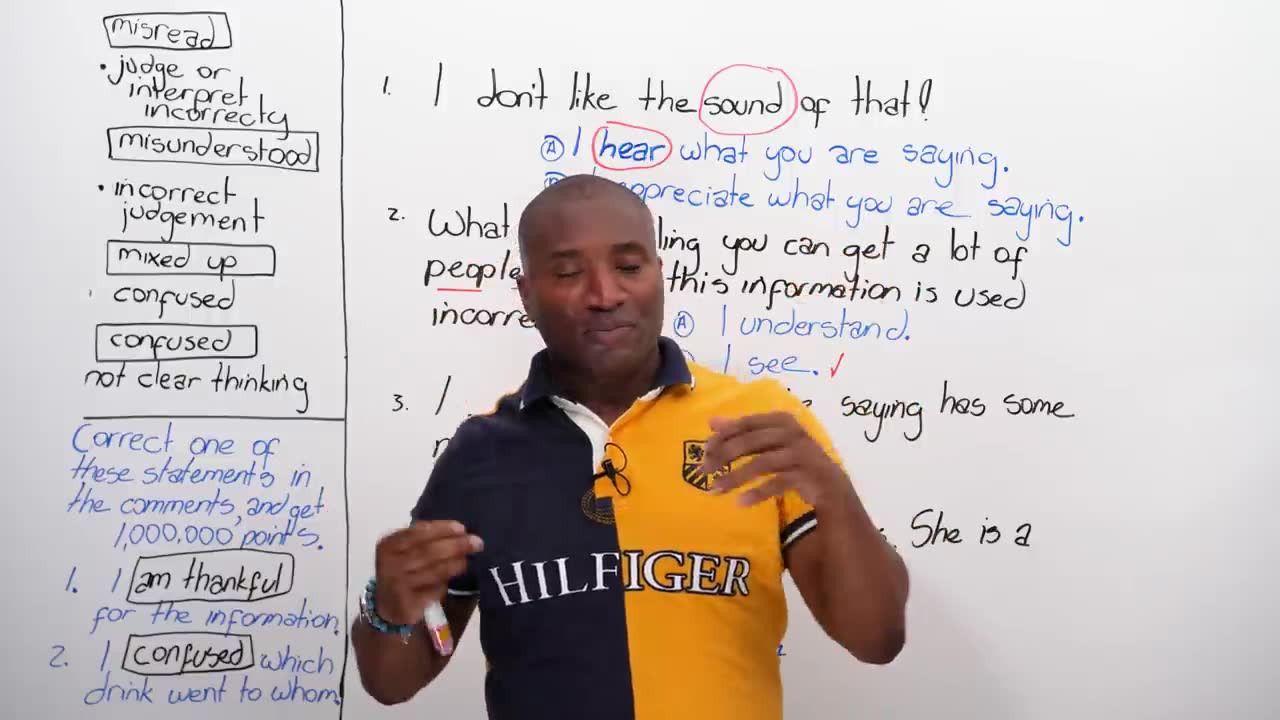 misread
• judge or
interpret
incorrecty
misunderstood
• incorrect
judgement
mixed up
confused
confused
not clear thinking
Correct one of
these statements in
the comments, and get
1,000,000 points.
1. I am thankful
for the information.
2. I confused which
drink went to whom.
1. I don't like the sound of that!
A I hear what you are saying.
appreciate what you are saying.
2. What you can get a lot of
people this information is used
A I understand.
I see. ✓
3. I saying has some
She is a
HILFIGER